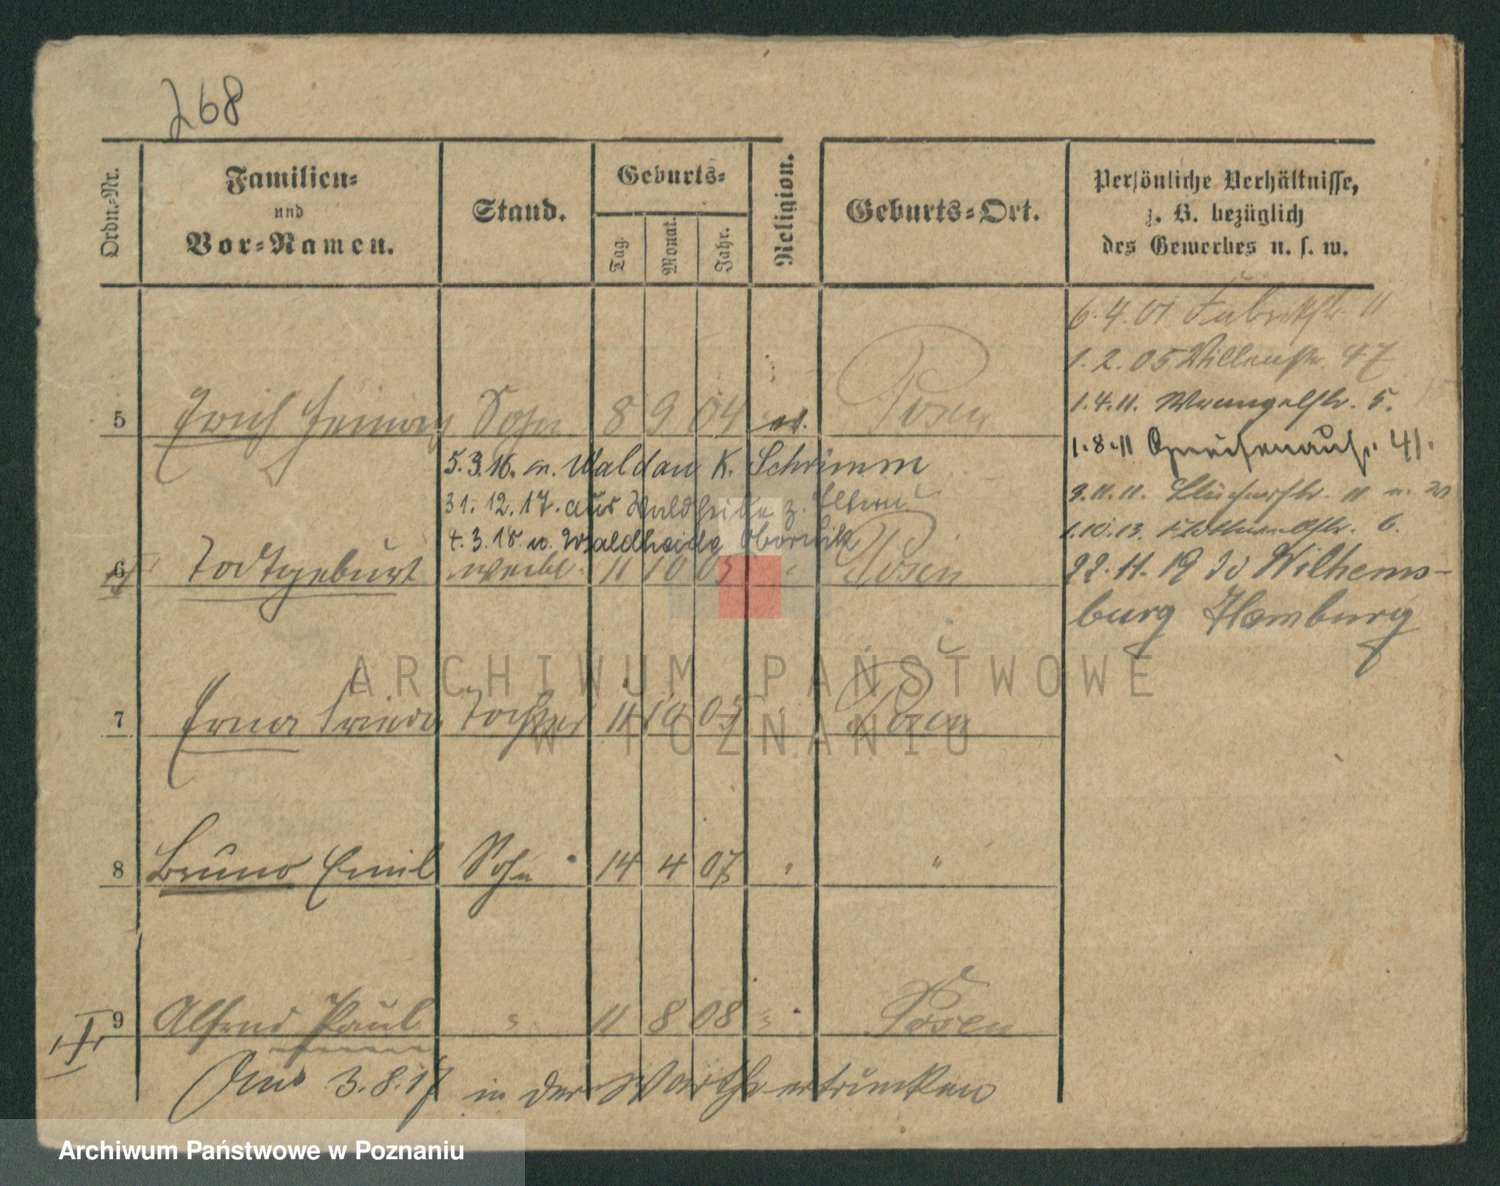 268
Ordn.-Nr.
Familien-
und
Vor-Namen.
Stand.
Geburts-
Tag.
Monat.
Jahr.
Religion.
Geburts-Ort.
Persönliche Verhältnisse,
z. B. bezüglich
des Gewerbes u. s. w.
6.4.01 Fabrikstr. 11
1.2.05 Villenstr. 47
1.4.11. Wrangelstr. 5.
5 Erich Sohn 8 9 04 ev. Posen
1.8.11 Gneisenaustr. 41.
5.3.16. n. Waldau K. Schrimm
31.12.17. aus Waldheide z. Eltern
4.3.18 n. Waldheide Obornik
1.10.13. 6.
6 Todtgeburt weibl. 11 10 05 " Posen
22.11.19 Wilhems-
burg Hamburg
7 Erna Frieda Tochter 11 10 05 Posen
8 Bruno Emil Sohn 14 4 07 " "
9 Alfred Paul " 11 8 08 " Posen
Am 3.8.17 in der Warthe ertrunken
ARCHIWUM PAŃSTWOWE
W POZNANIU
Archiwum Państwowe w Poznaniu